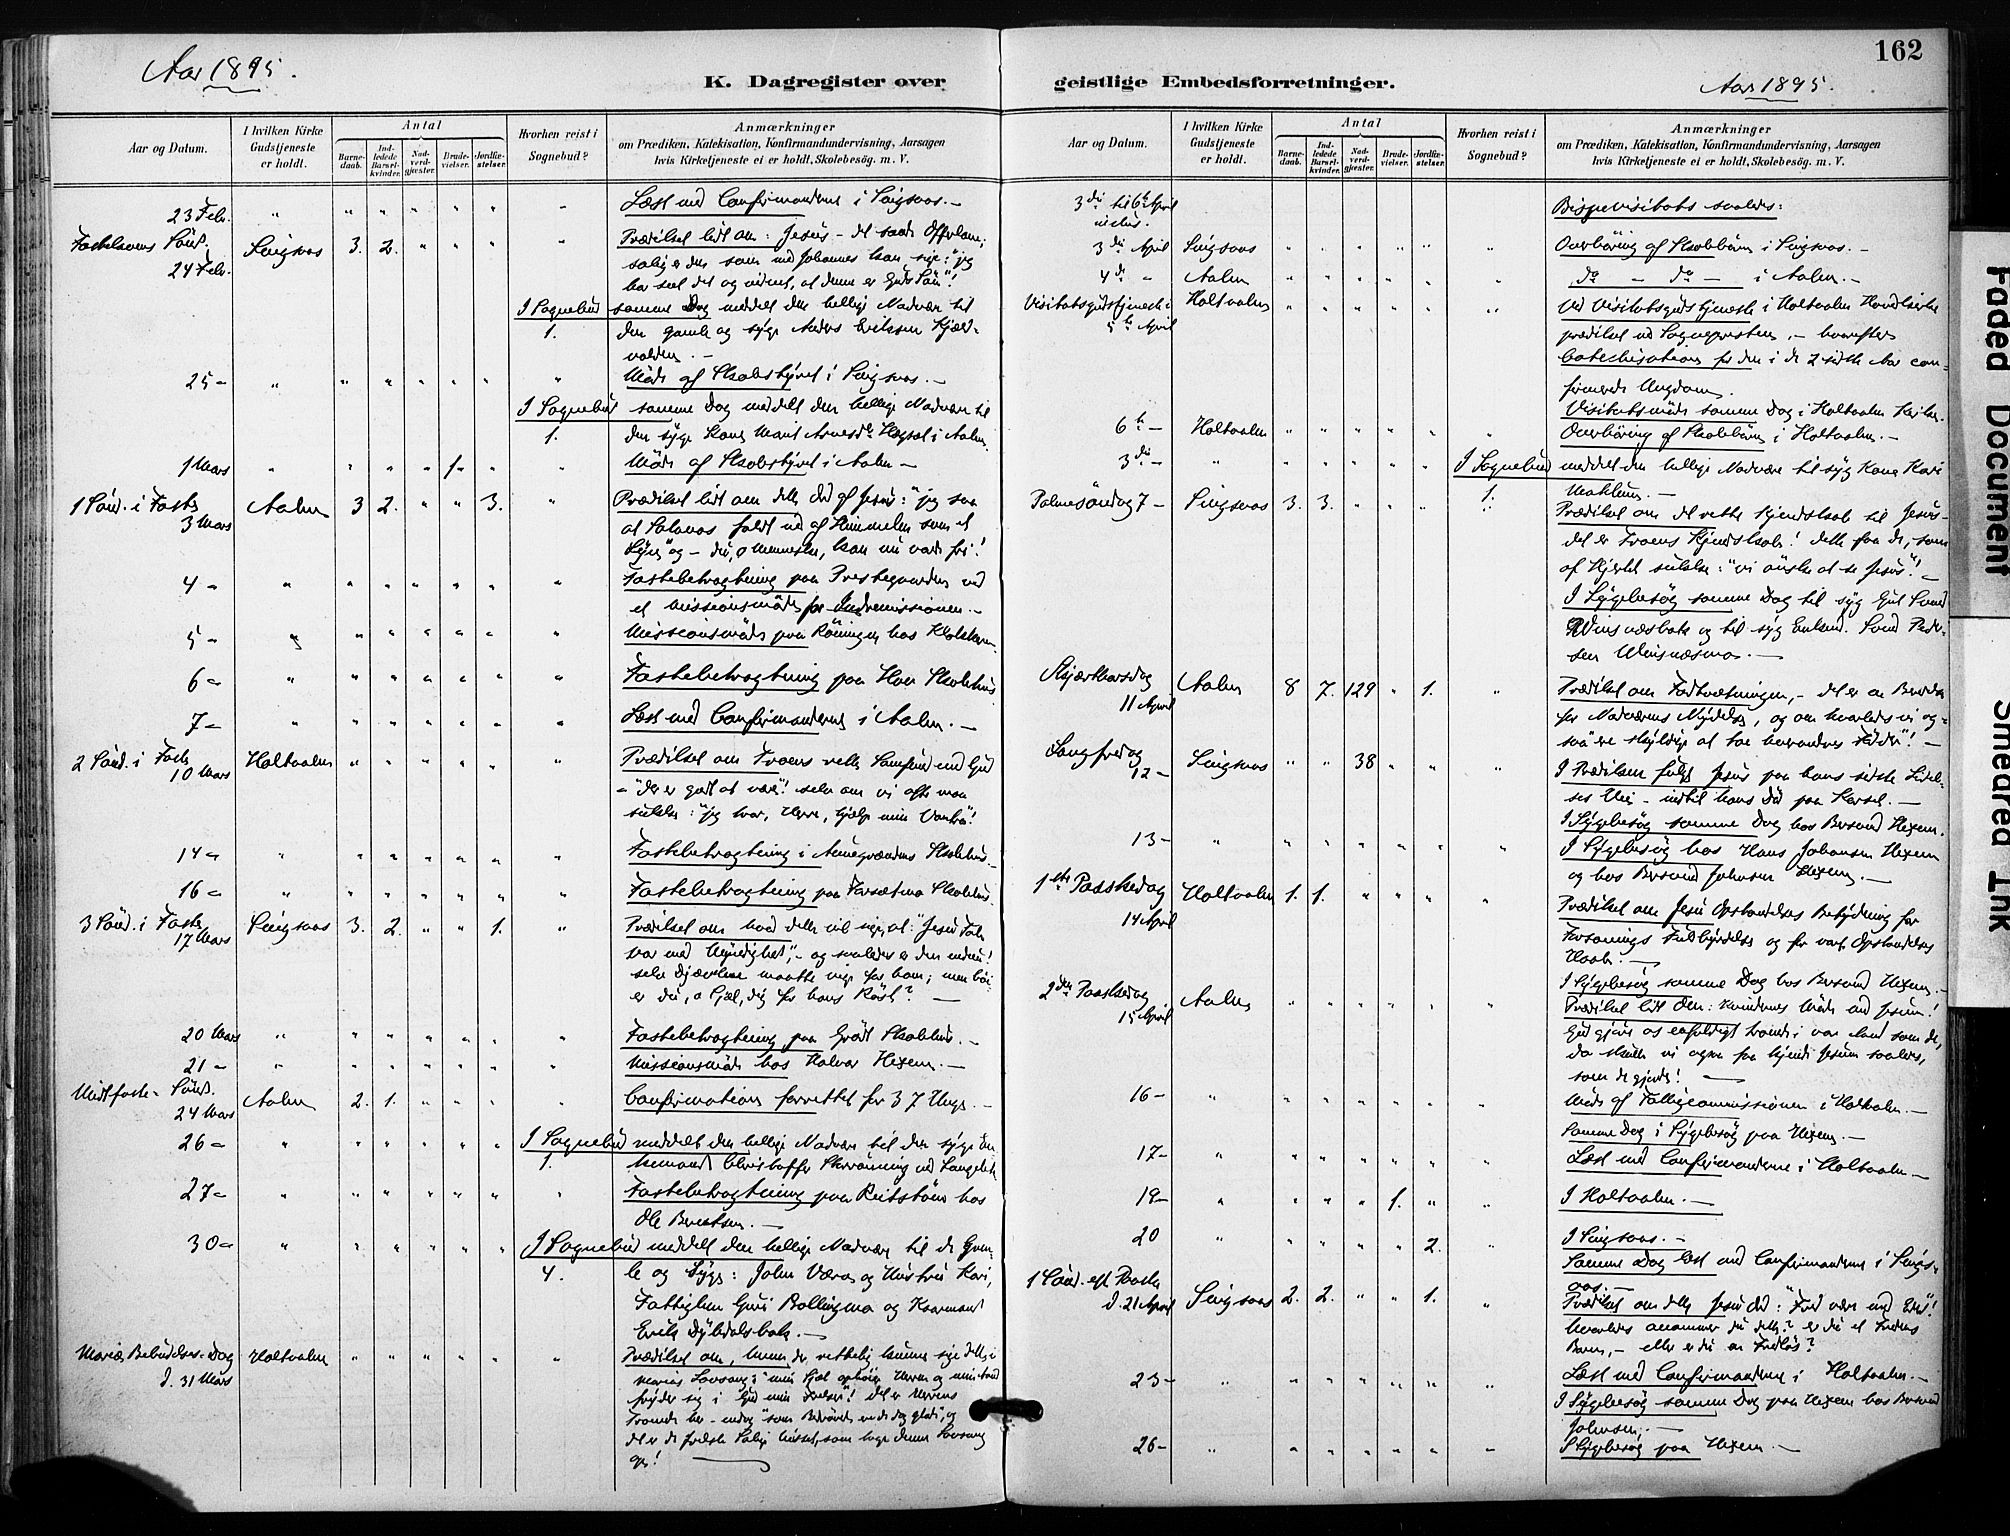 Aar 1895.
K. Dagregister over
Aar og Datum.
I hvilken Kirke Gudstjeneste er holdt.
Antal
Barnedaab.
Indledede Barselkvinder.
Nadverdgjester.
Brudevielser.
Jordfæstelser.
Hvorhen reist i Sognebud?
Anmærkninger
om Prædiken, Katekisation, Konfirmandundervisning, Aarsagen
hvis Kirketjeneste ei er holdt, Skolebesög. m. V.
23 Febr. " " " " " " " Læst med Confirmanderne i Singsaas. -
Fastelavens Sönd. Singsaas 3. 2. " " " " Prædiket lidt om: Jesus - det sande Offerlam;
24 Febr. salig er den som med Johannes kan sige: "jeg
har seet det og vidnet, at denne er Guds Sön"!
I Sognebud samme Dag meddelt den hellige Nadvære til
1. den gamle og syge Anders Eriksen
25 - " " " " " " " " Möde af Skolestyret i Singsaas. -
I Sognebud samme Dag meddelt den hellige Nadvære til
1. den syge Kone Marit i Aalen
1 Mars " " " " 1 " " " Möde af Skolestyret i Aalen -
1 Sönd. i Faste Aalen 3 2. " " 3. " Prædiket lidt om dette Ord af Jesus: "jeg saa
3 Mars at Satanas faldt ned af Himmelen som et
Lyn" og - du, o Menneske, kan nu være fri!
4 - " " " " " " " Fastebetragtning paa Prestegaarden ved
et Missionsmöde for Indremissionen. -
5 - " " " " " " " Missionsmöde paa hos
6 - " " " " " " " Fastebetragtning paa Skolehus
7 - " " " " " " " Læst med Confirmanderne i Aalen. -
2 Sönd. i Faste Holtaalen " " " " " " Prædiket om Troens rette Samfund med Gud
10 Mars - "der er godt at være"! selv om vi ofte maa
sukke: "jeg tror, Herre, hjælp min Vantro"!
14 - " " " " " " " Fastebetragtning i Skolehus. -
16 - " " " " " " " Fastebetragtning paa Skolehus.
3 Sönd. i Faste Singsaas 3. 2. " " 1. " Prædiket om hvad dette vil sige, at: "Jesu Tale
17 Mars var med Myndighed", - og saaledes er den endnu!
selv Djævlene maatte vige for ham; men böi-
er du, o Sjæl, dig for hans Röst? -
20 Mars " " " " " " " Fastebetragtning paa Gröt Skolehus. -
21 - " " " " " " " Missionsmöde hos Halvor Hexem. -
Midtfaste - Sönd. Aalen 2. 1. " " " " Confirmation forrettet for 37 Unge. -
24 Mars
26 - " " " " " " I Sognebud meddelt den hellige Nadvære til den syge En-
1. kemand Christoffer ved
27 - " " " " " " " Fastebetragtning paa hos
Ole Berntsen. -
30 - " " " " " " I Sognebud meddelt den hellige Nadvære til de Gam-
4. le og Syge: John og Hustru Kari,
Fattiglem Guri Bollingmo og
Erik
Mariæ Bebudelses-Dag Holtaalen " " " " " " Prædiket om, hvem der rettelig kunne sige dette i
d. 31 Mars Marias Lovsang: "min Sjæl ophöier Herren og min Aand
fryder sig i Gud min Frelser"! det er Herrens
og
det er de frelste som tage denne Lovsang
op! -
162
geistlige Embedsforretninger.
Aar 1895.
Aar og Datum.
I hvilken Kirke Gudstjeneste er holdt.
Antal
Barnedaab.
Indledede Barselkvinder.
Nadverdgjester.
Brudevielser.
Jordfæstelser.
Hvorhen reist i Sognebud?
Anmærkninger
om Prædiken, Katekisation, Konfirmandundervisning, Aarsagen
hvis Kirketjeneste ei er holdt, Skolebesög. m. V.
3die til 6te April Bispevisitats saaledes:
inclus.
3die April Singsaas " " " " " " Overhöring af Skolebörn i Singsaas. -
4de - Aalen " " " " " " do - do - i Aalen. -
Visitatsgudstjeneste i Holtaalen " " " " " " Ved Visitatsgudstjeneste i Holtaalen Hovedkirke
5te April prædiket ved Sognepresten, - hvorefter
Catechisation for den i de 2 sidste Aar con-
firmerede Ungdom.
Visitatsmöde samme Dag i Holtaalen Kirke.
6te - Holtaalen " " " " " " Overhöring af Skolebörn i Holtaalen. -
3die - " " " " " " I Sognebud meddelt den hellige Nadvære til syg Kone Kari
1.
Palmesöndag 7 - Singsaas 3. 3. " " " " Prædiket om det rette Kjendskab til Jesus -
det er Troens Kjendskab! dette faa de, som
af Hjertet sukke: "vi önske at se Jesus"! -
I Sygebesög samme Dag til syg
og til syg Enkemd. Peder-
sen
Skjærthorsdag Aalen 8 7. 129 " 1. " Prædiket om Fodtvætningen, -
11 April for Nadverens Nydelse, og om hvorledes vi og-
saa "ere skyldige at toe hverandres Födder"! -
Langfredag Singsaas " " 38 " " " I Prædiken fulgt Jesus paa hans sidste Lidel-
12 - ses Vei - indtil hans Död paa Korset. -
I Sygebesög samme Dag hos Hexem.
13 - " " " " " " " I Sygebesög hos Hans Johansen Hexem
og hos Johnsen Hexem. -
1ste Paaskedag Holtaalen 1. 1. " " " " Prædiket om Jesu Opstandelses Betydning for
14 April Forsonings Fuldbyrdelse og for vort Opstandelses
Haab. -
I Sygebesög samme Dag hos Hexem. -
2den Paaskedag Aalen " " " " " " Prædiket lidt om: Kvindernes Möde med Jesum!
15 April Gud gjöre os enfoldigt troende i vor Aand som de,
da skulle vi ogsaa faa kjende Jesum saaledes,
som de gjorde! -
16 - " " " " " " " Möde af Fattigcommissionen i Holtaalen. -
Samme Dag i Sygebesög paa Hexem. -
17 - " " " " " " " Læst med Confirmanderne i Holtaalen -
19 - " " " " 1. " " I Holtaalen. -
20 " " " " " 2. " I Singsaas. -
Samme Dag læst med Confirmanderne i Sings-
aas. -
1 Sönd. eft. Paaske Singsaas 2. 2. " " 1. " Prædiket om dette Jesu Ord: "Fred være med Eder"!
d. 21 April hvorledes anammer du dette? er du et Fredens
Barn, - eller er du en Fredlös?
23 - " " " " " " " Læst med Confirmanderne i Holtaalen. -
I Sygebesög samme Dag paa Hexem hos
Johnsen. -
26 - " " " " " " " I Sygebesög paa Hexem. -
Faded Document
Smeared Ink